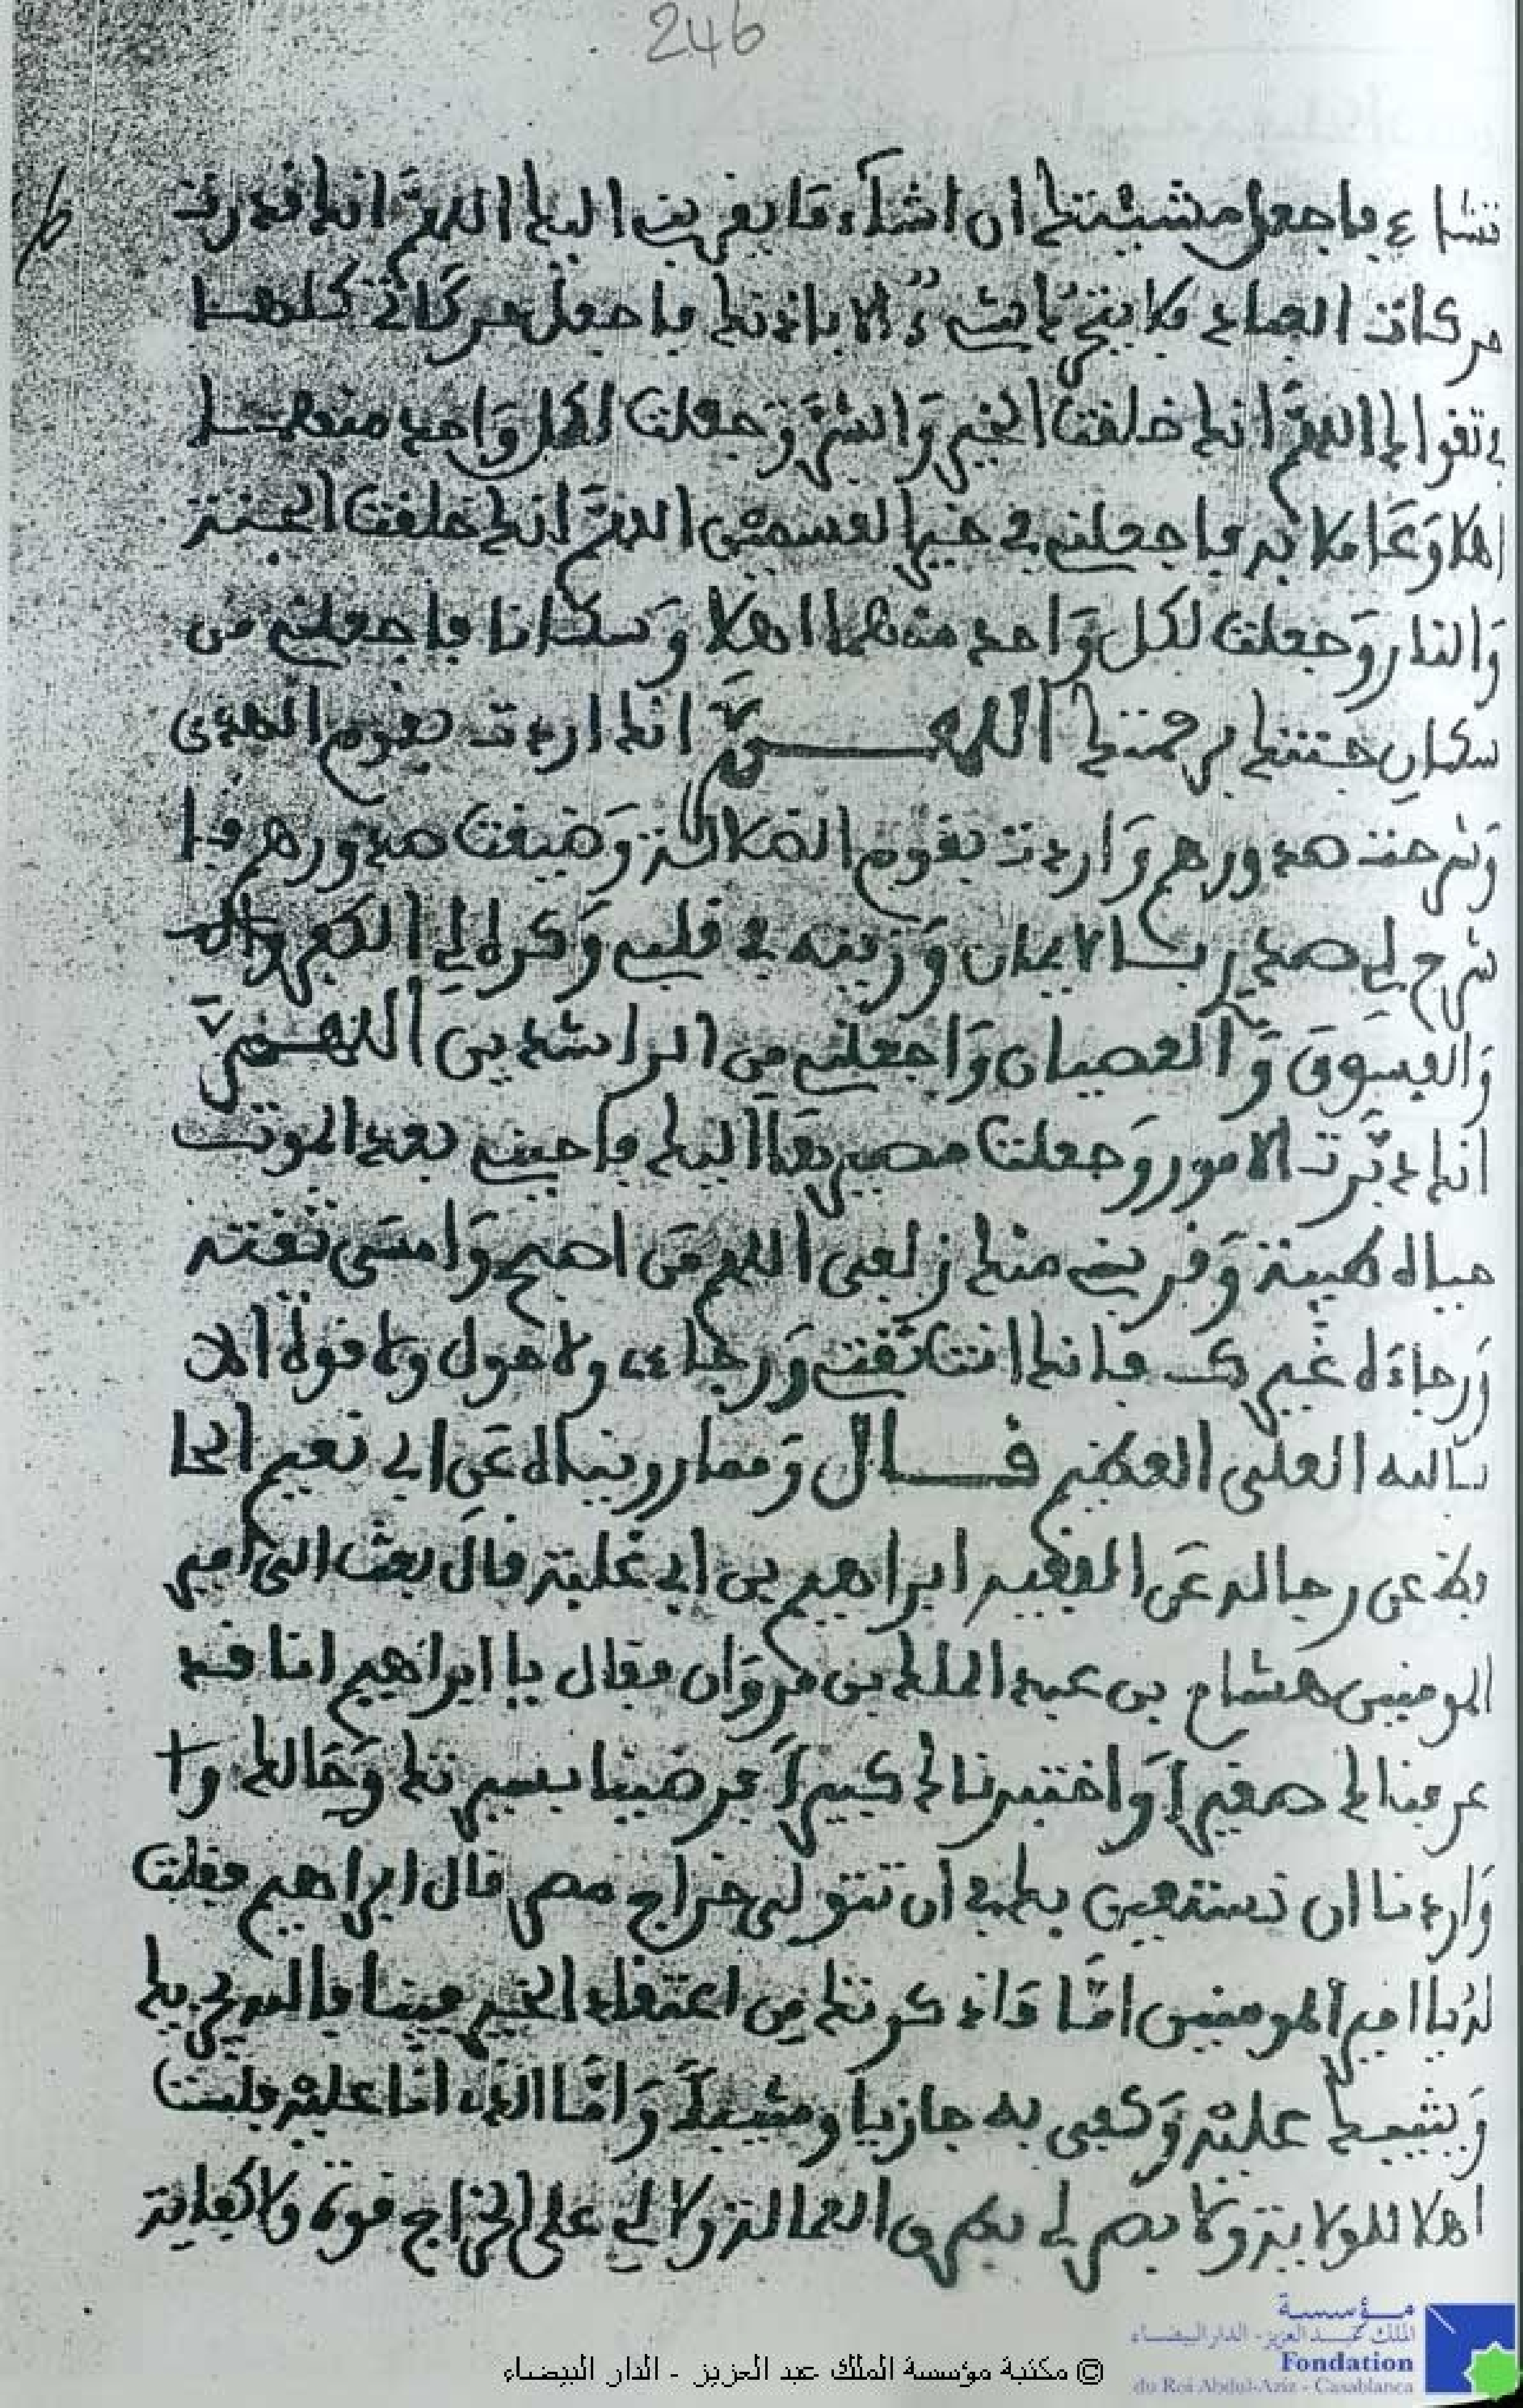 246
تشاء فاجعل مشيئتك ان اشاء ما يقربني اليك اللهم انك قدرت
حركات العباد فلا يتحرك شيء الا باذنك فاجعل حركاتي كلها
في تقواك اللهم انك خلقت الخير والشر وجعلت لكل واحد منهما
اهلا وعاملا به فاجعلني في خير القسمين اللهم انك خلقت الجنة
والنار وجعلت لكل واحد منهما اهلا وسكانا فاجعلني من
سكان جنتك برحمتك اللهم انك اردت بقوم الهدى
وشرحت صدورهم واردت بقوم الضلالة وضيقت صدورهم فا
شرح لي صدري بالايمان وزينه في قلبي وكره لي الكفر
والفسوق والعصيان واجعلني من الراشدين اللهم
انك دبرت الامور وجعلت مصيرها اليك فاحيني بعد الموت
حياة طيبة وقربني منك زلفى اللهم من اصبح وامسى ثقته
ورجاءه غيرك فانك انت ثقتي ورجاءي ولا حول ولا قوة الا
بالله العلي العظيم قال ومما رويناه عن ابي نعيم الحا
فظ عن رجاله عن الفقيه ابراهيم بن ابي عبلة قال بعث الي امير
المومنين هشام بن عبد الملك بن مروان فقال يا ابراهيم انا قد
عرفناك صغيرا واختبرناك كبيرا فرضينا بسيرتك وحالك
واردنا ان نستعين بك في ان تتولى خراج مصر قال ابراهيم فقلت
له يا امير المومنين اما ما ذكرته من اعتقاد الخير فينا فالله يجزيك
ويثيبك عليه وكفى به جازيا ومثيبا واما الذي انا عليه فليت
اهلا للولاية ولا بصر لي العمالة ولا لي على الخراج قوة ولا كفاية
مؤسسة
الملك عبد العزيز - الدار البيضاء
Fondation
du Roi Abdul-Aziz - Casablanca
© مكتبة مؤسسة الملك عبد العزيز - الدار البيضاء